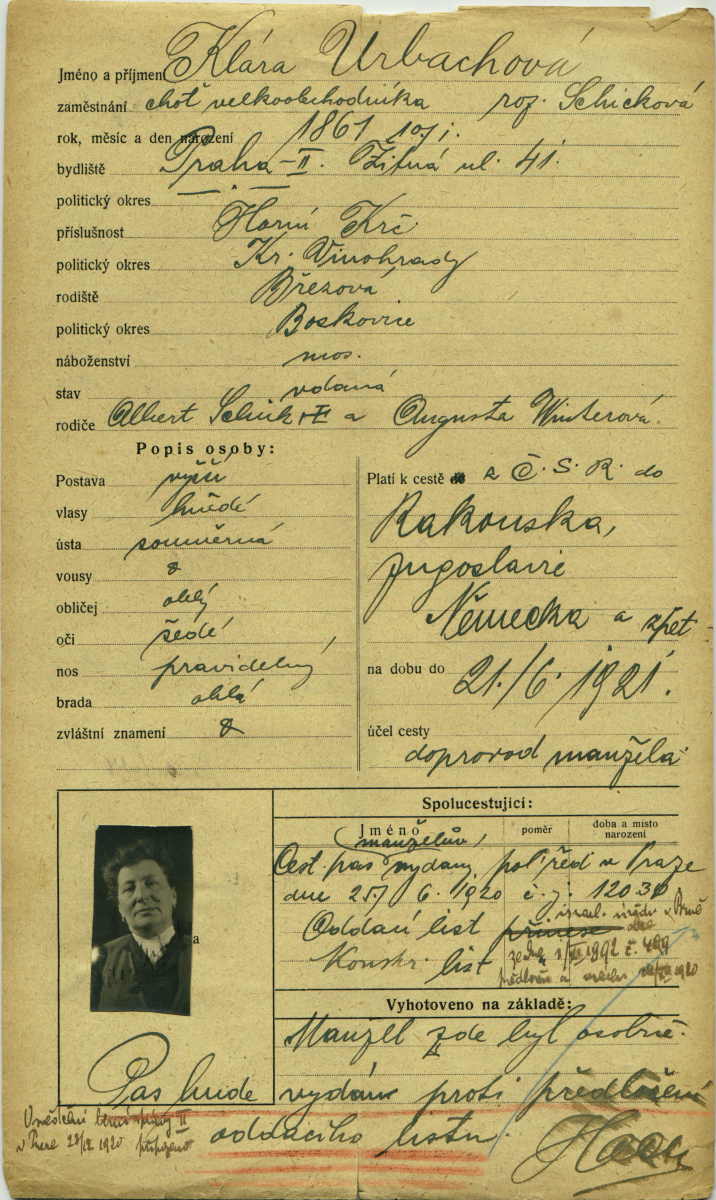 Jméno a příjmení Klára Urbachová
zaměstnání choť velkoobchodníka roz. Schicková
rok, měsíc a den narození 1861 10./i.
bydliště Praha-II. Žitná ul. 41.
politický okres
příslušnost Horní Krč
politický okres Kr. Vinohrady
rodiště Březová
politický okres Boskovice
náboženství mos.
stav vdaná
rodiče Albert Schick a Augusta Winterová.
Popis osoby:
Postava vyšší
vlasy hnědé
ústa souměrná
vousy
obličej oblý
oči šedé
nos pravidelný
brada oblá
zvláštní znamení
Platí k cestě z Č. S. R. do
Rakouska,
Jugoslavie
Německa a zpět
na dobu do 21./6. 1921.
účel cesty
doprovod manžela
Spolucestující:
Jméno poměr doba a místo narození
manželův
Cest. pas vydaný pol. řed. v Praze
dne 25./6. 1920 č. j. 120
Oddací list přinese
israel. v Brně
1892 č. 499
Konskr. list
1920
Vyhotoveno na základě:
Manžel zde byl osobně.
Pas bude vydán proti předložení
oddacího listu.
II
1920 připojeno
a